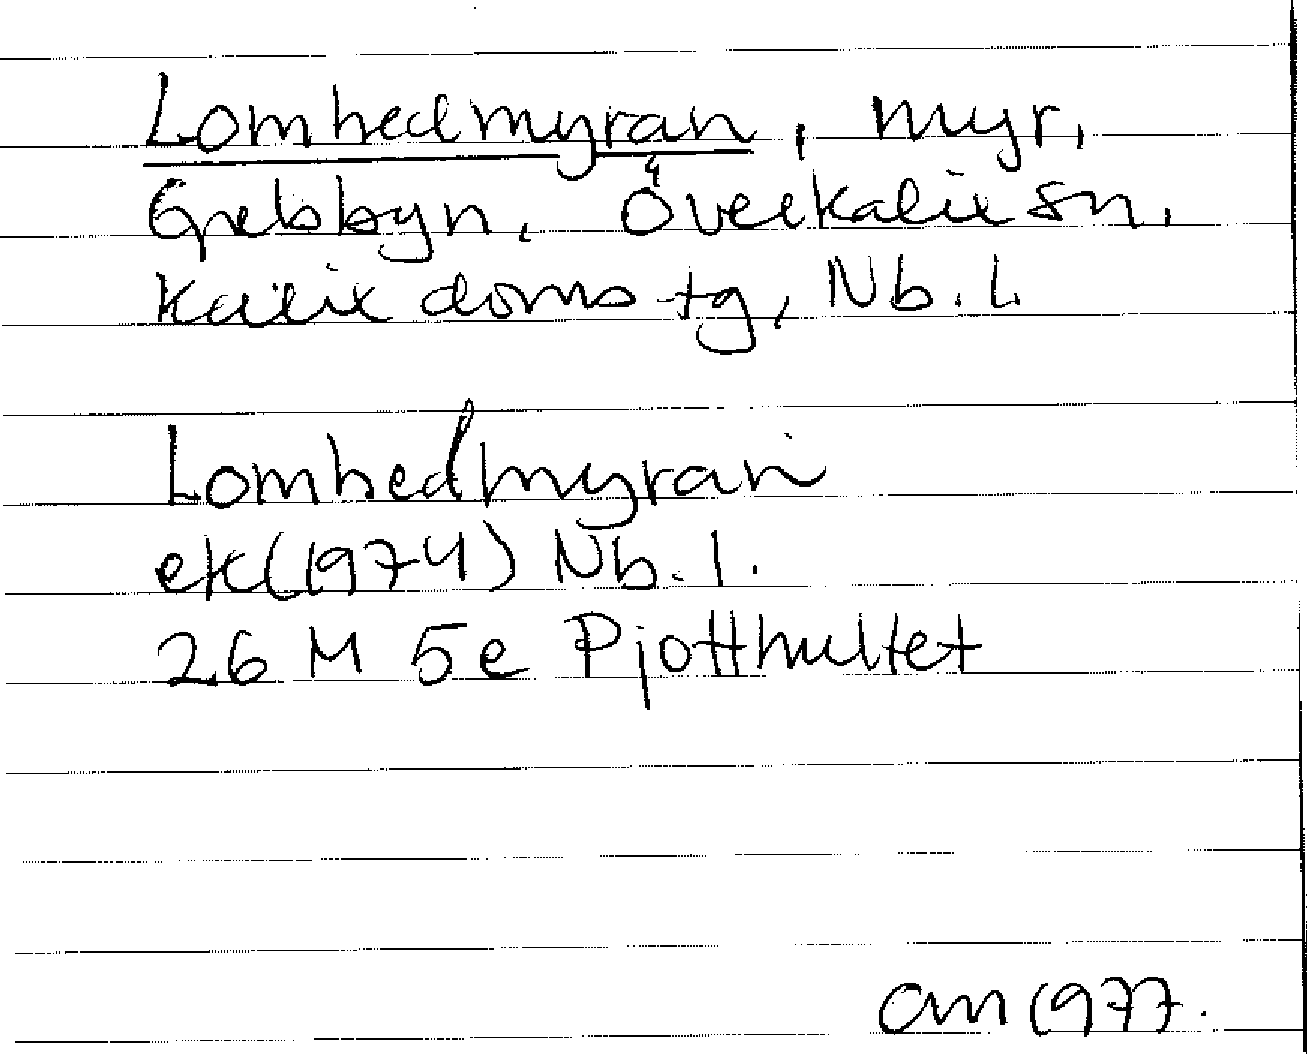 Lomhedmyran, myr,
Grelsbyn, Överkalix sn,
Kalix domstg, Nb. l.
Lomhedmyran
ek (1974) Nb. l.
26 M 5e Pjotthultet
am 1977.